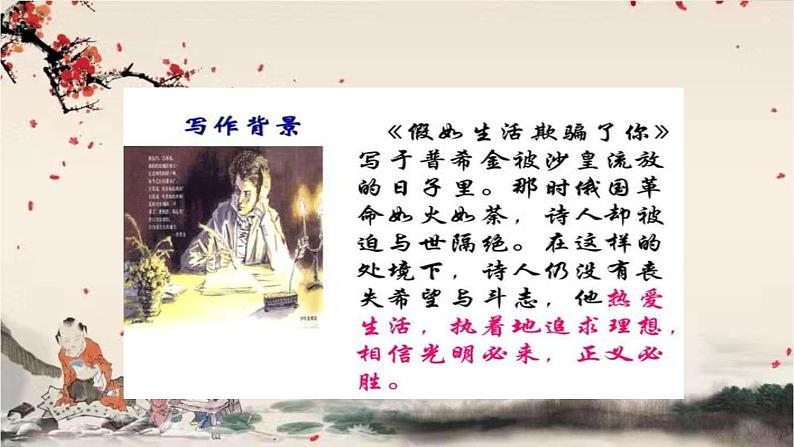 写作背景
《假如生活欺骗了你》
写于普希金被沙皇流放
的日子里。那时俄国革
命如火如荼，诗人却被
迫与世隔绝。在这样的
处境下，诗人仍没有丧
失希望与斗志，他热爱
生活，执着地追求理想，
相信光明必来，正义必
胜。